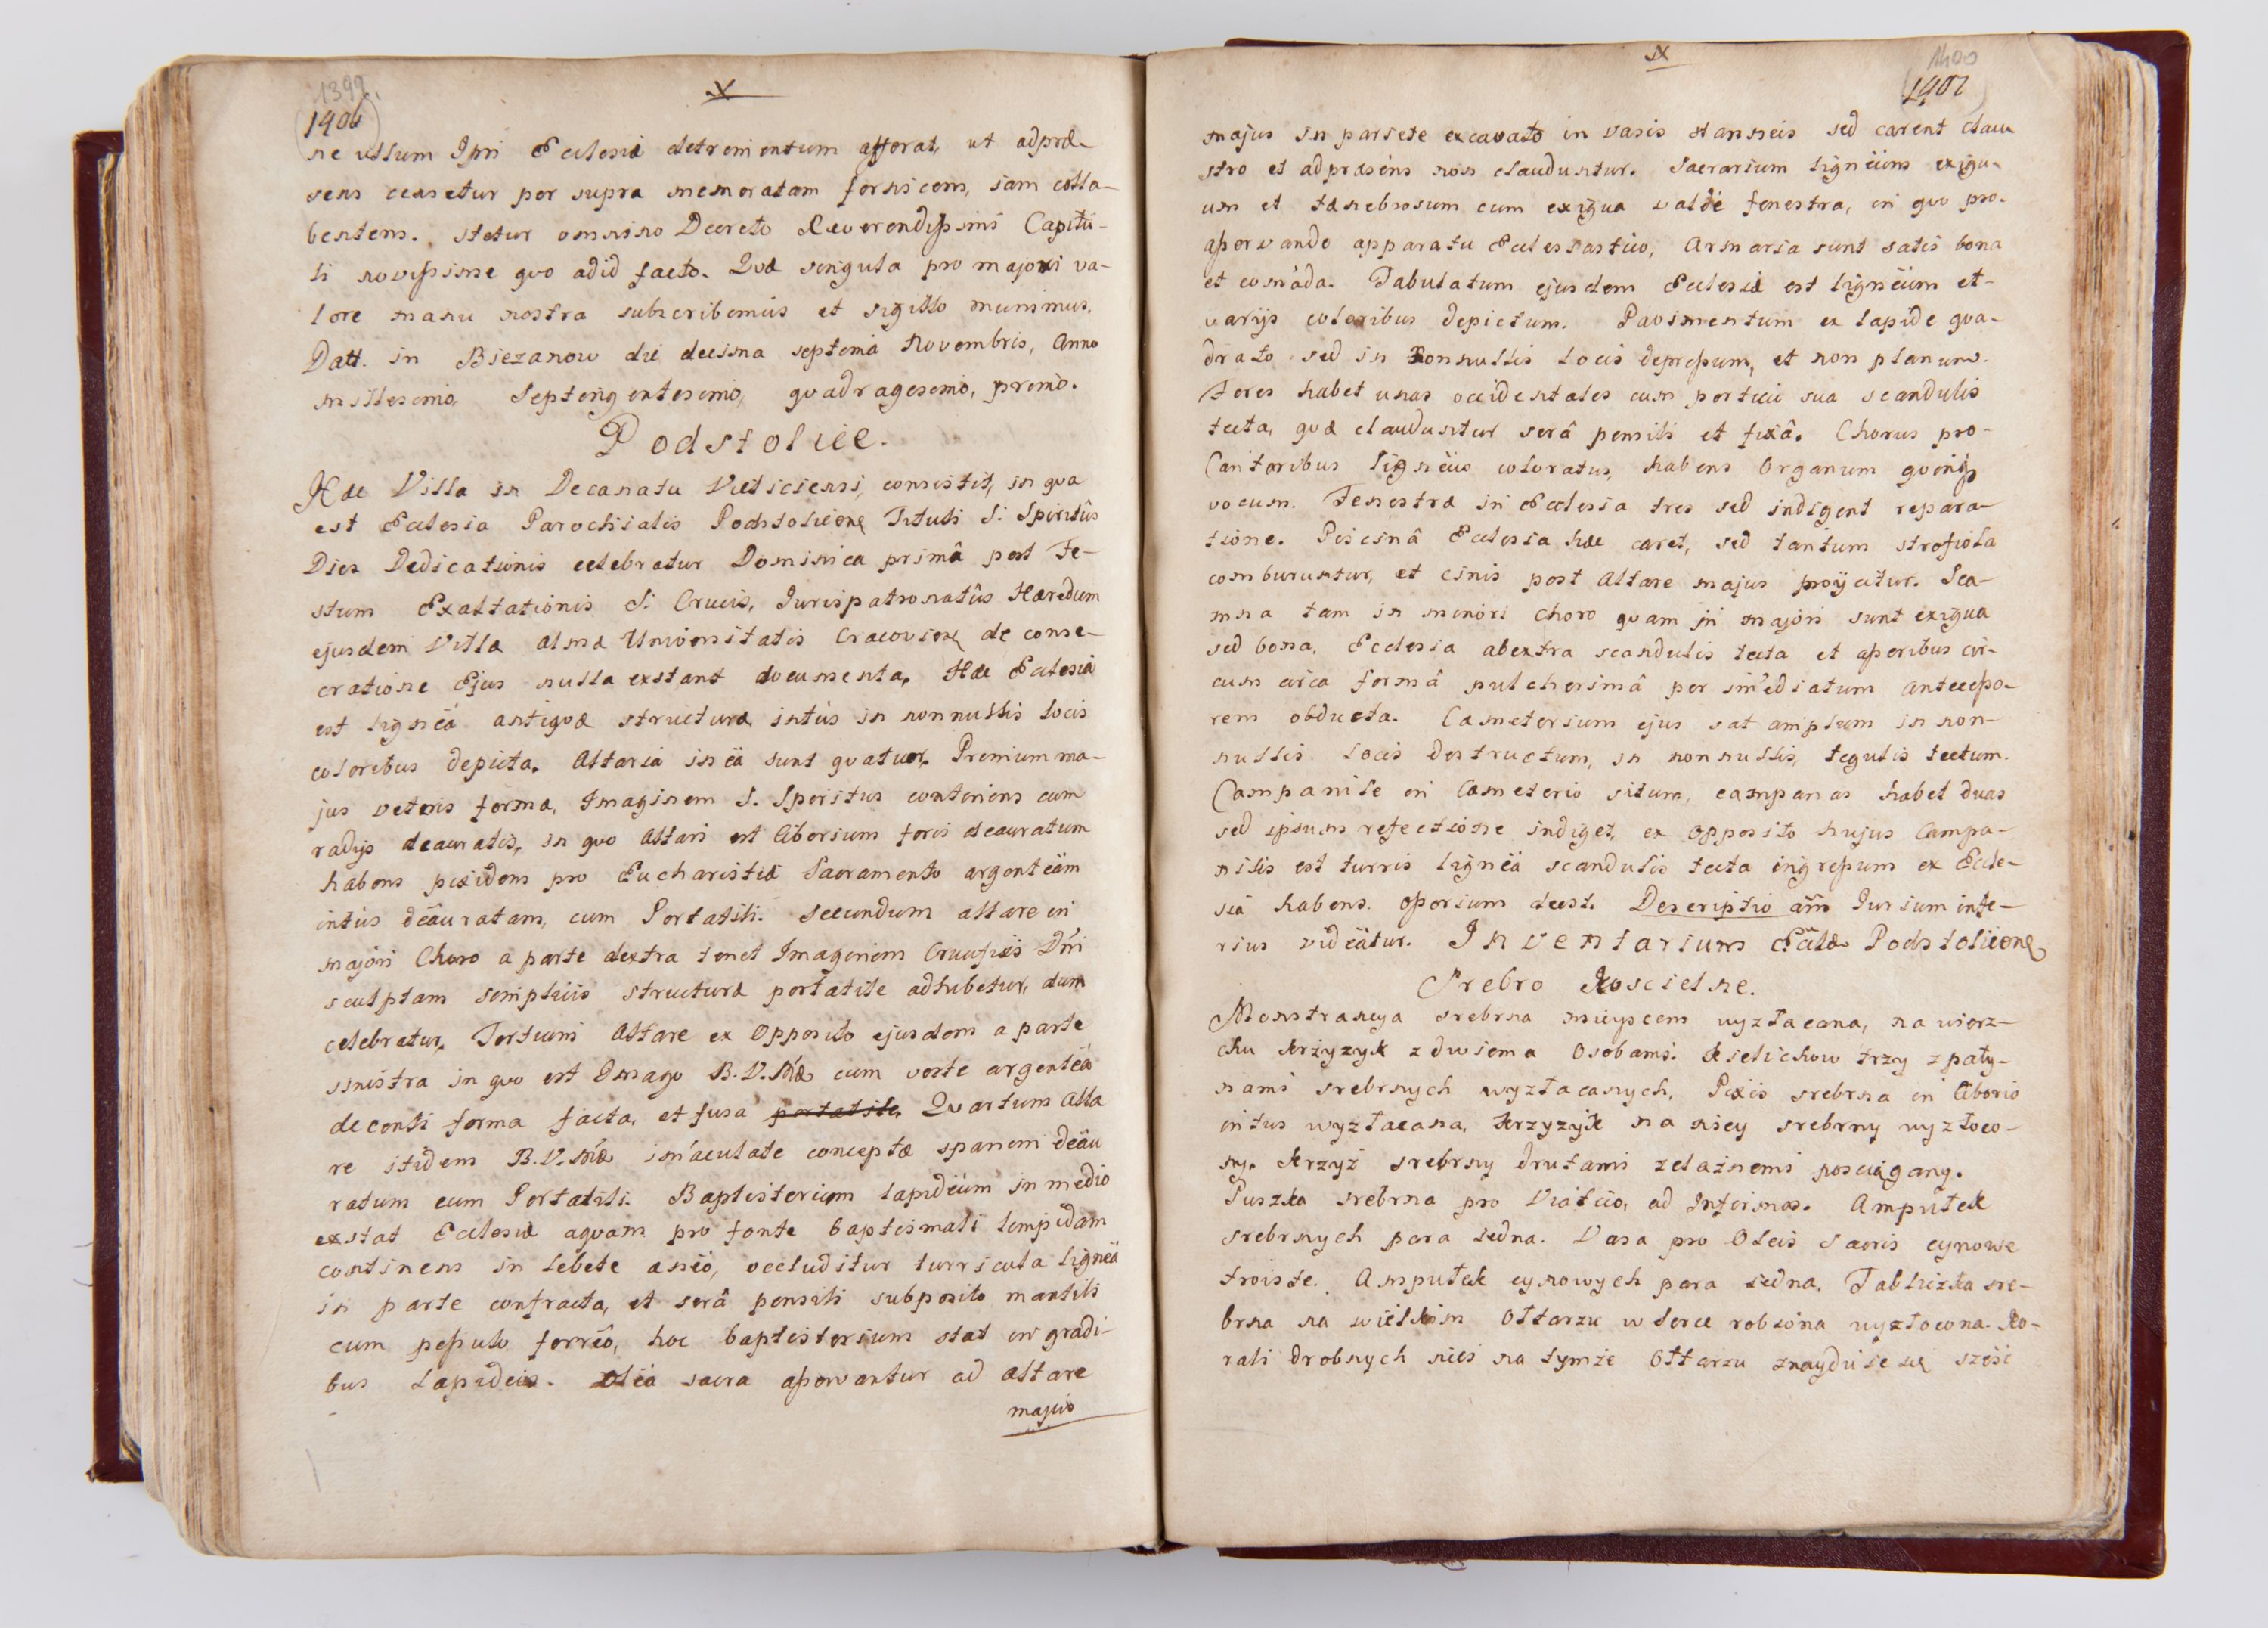 1399.
1401
X
ne ullum Ipsi Ecclesiæ detrementum afferat, ut adpræ-
sens censetur per supra memoratam fornicem, iam colla-
bentem. stetur omnino Decreto Reverendissimi Capitu-
li novissime quo adid facto. Quæ singula pro majori va-
lore manu nostra subscribemus et sigillo munimus.
Datt. in Biezanow die decima septema Novembris, Anno
millesimo Septengentesimo, quadragesimo, primo.
Podstolice.
Hæc Villa in Decanatu Vieliciensi, consistit, in qua
est Ecclesia Parochialis Podstolicenę Tituli S: Spiritûs
Dies Dedicationis celebratur Dominica primâ post Fe-
stum Exaltationis S: Crucis, Jurispatronatûs Hæredum
ejusdem Villæ almæ Universitatis Cracovienę de conse-
cratione Ejus nulla exstant documenta, Hæc Ecclesia
est lignëa antiquæ structuræ intùs in nonnullis locis
coloribus depicta. Altaria in ëa sunt quatuor, Premium ma-
jus veteris forma, Imaginem S. Speritus continens cum
radijs deauratis, in quo Altari est Ciborium foris deauratum
habens pixidem pro Eucharistiæ Sacramento argentëam
intùs dëauratam, cum Portatili. Secundum altare in
majori Choro a parte dextra tenet Imaginem Crucifixi Dñi
sculptam simplicis structuræ portatile adhibetur, dum
celebratur, Tertium Altare ex Opposito ejusdem a parte
sinistra in quo est Imago B.V.Mæ cum veste argentëa
decenti forma facta, et fusa portatile, Quartum Alta
re itidem B.V.Mæ im̃aculate conceptæ spanem dëau
ratum cum Portatili. Baptisterium lapidëum in medio
exstat Ecclesiæ aquam pro fonte baptismali limpidam
continens in lebete aneo, occluditur turricula lignëa
in parte confracta, et serâ pensili subposito mantili
cum pepulo ferrëo, hoc baptisterium stat in gradi-
bus lapideis. Olëa sacra asservantur ad altare
majus
X
1400
1402
majus in pariete excavato in vasis stanneis sed carent clau
stro et adpræsens non clauduntur. Sacrarium lignëum exigu-
um et tænebrosum cum exigua valde fenestra, in quo pro-
asservando apparatu Ecclesiastico, Armaria sunt satis bona
et com̃oda. Tabulatum ejusdem Ecclesiæ est lignëum et-
varijs coloribus depictum. Pavimentum ex lapide qua-
drato sed in nonnullis locis depressum, et non planum.
Fores habet unas occidentales cum porticu sua scandulis
tecta, quæ clauduntur serâ pensili et fixâ. Chorus pro-
Cantoribus lignëus coloratus, habens Organum quinq
vocum. Fenestræ in Ecclesia tres sed indigent repara-
tione. Piscinâ Ecclesia hæc caret, sed tantum strofiola
comburuntur, et cinis post Altare majus proijcitur. Sca-
mna tam in minori Choro quam in majori sunt exigua
sed bona, Ecclesia abextra scandulis tecta et aseribus cir-
cum circa formâ pulcherimâ per im̃ediatum antecesso-
rem obducta. Cæmeterium ejus sat amplum in non-
nullis locis destructum, in nonnullis, tegulis tectum.
Campanile in Cæmeterio situm, campanas habet duas
sed ipsum refectione indiget, ex Opposito hujus Campa-
nilis est turris lignëa scandulis tecta ingressum ex Eccle-
sia habens. Osorium deest. Descriptio añis Jurium infe-
rius vidëatur. Inventarium Ecclæ Podstolicenę
Srebro Koscielne.
Monstrancya srebrna mieyscem wyzłacana, na wierz-
chu krzyzyk z dwiema Osobami. Kielichow trzy z paty-
nami srebrnych wyzłacanych, Pixis srebrna in Ciborio
intus wyzłacana, krzyzyk na niey srebrny wyzłoco-
ny. Krzyż srebrny drutami zelażnemi posciągany.
Puszka srebrna pro Viatico, ad Infirmos. Ampułek
srebrnych para iedna. Vasa pro Oleis Sacris cynowe
troiste. Ampułek cynowych para iedna, Tabliczka sre-
brna na wielkim Ołtarzu w serce robiona wyzłocona. Ko-
rali drobnych nici na tymże Ołtarzu znayduie się sześć